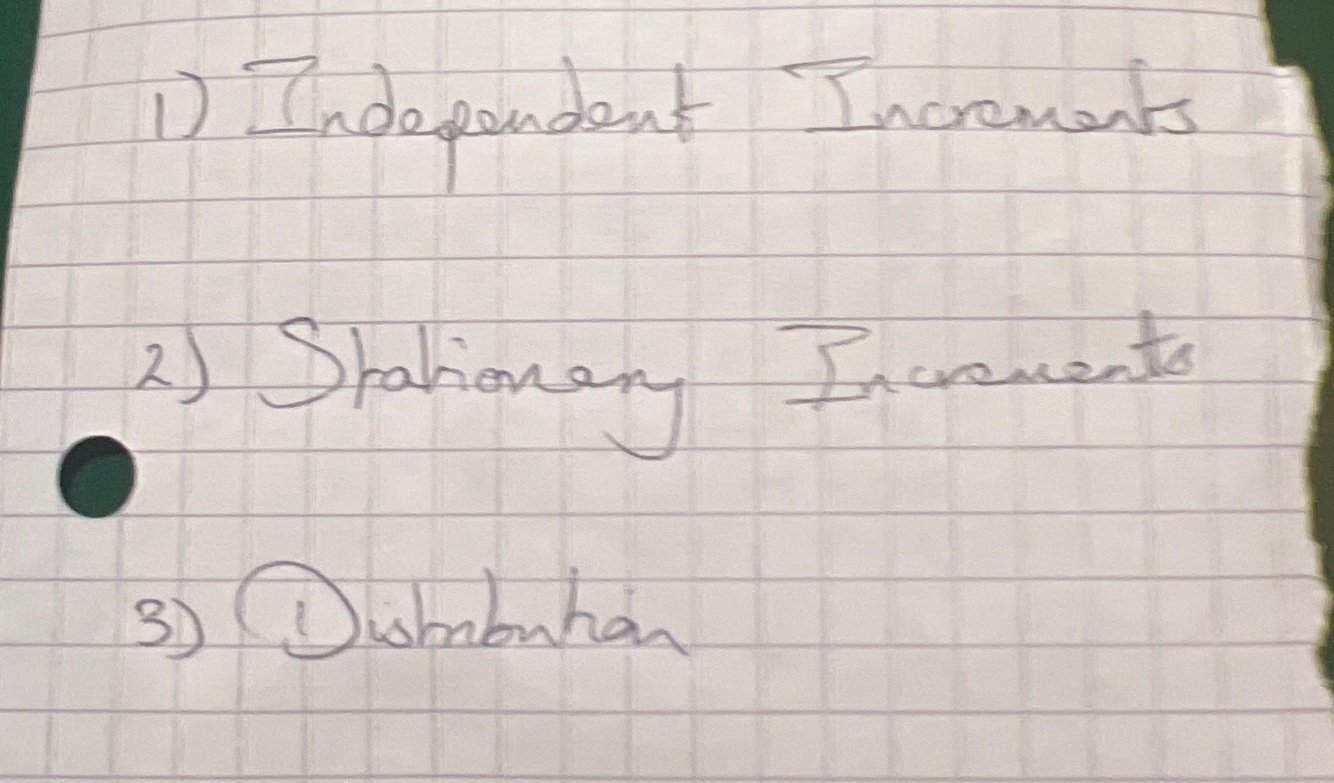 1) Independent Increments
2) Stationary Increments
3) Distribution